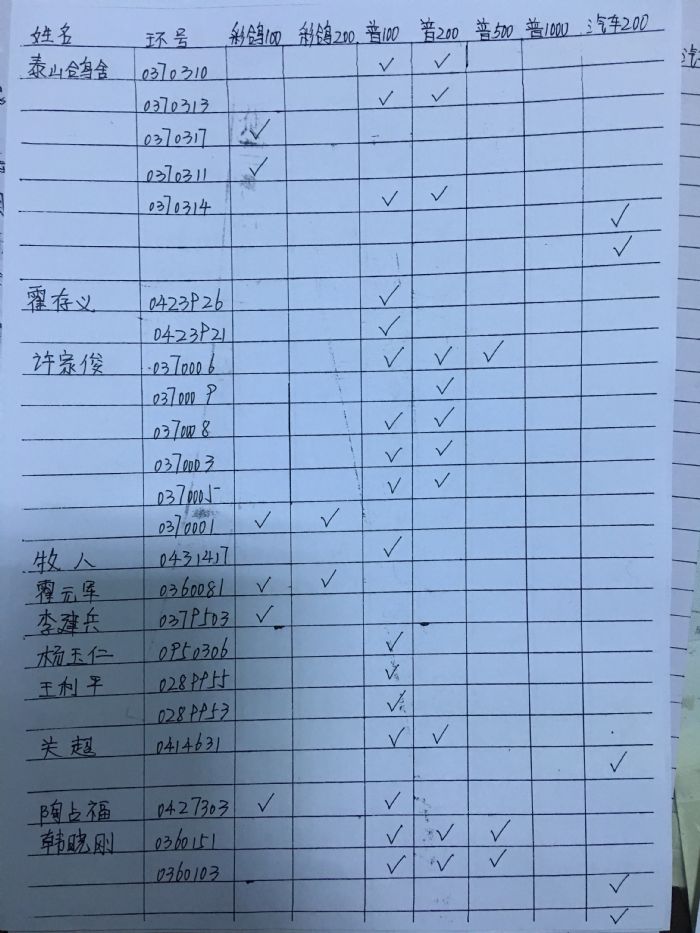 姓名 环号 彩鸽100 彩鸽200 普100 普200 普500 普1000 汽车200
泰山鸽舍 0370310 ✓ ✓
0370313 ✓ ✓
0370317 ✓
0370311 ✓
0370314 ✓ ✓
✓
✓
霍存义 0423926 ✓
0423921 ✓
许宗俊 0370006 ✓ ✓ ✓
0370009 ✓
0370008 ✓ ✓
0370003 ✓ ✓
0370005 ✓ ✓
0370001 ✓ ✓
牧人 0431417 ✓
霍元军 0360081 ✓ ✓
李建兵 0379503 ✓
杨玉仁 0950306 ✓
王利平 0289955 ✓
0289953 ✓
关超 0414631 ✓ ✓
✓
陶占福 0427303 ✓ ✓
韩晓刚 0360151 ✓ ✓ ✓
0360103 ✓ ✓ ✓
✓
✓